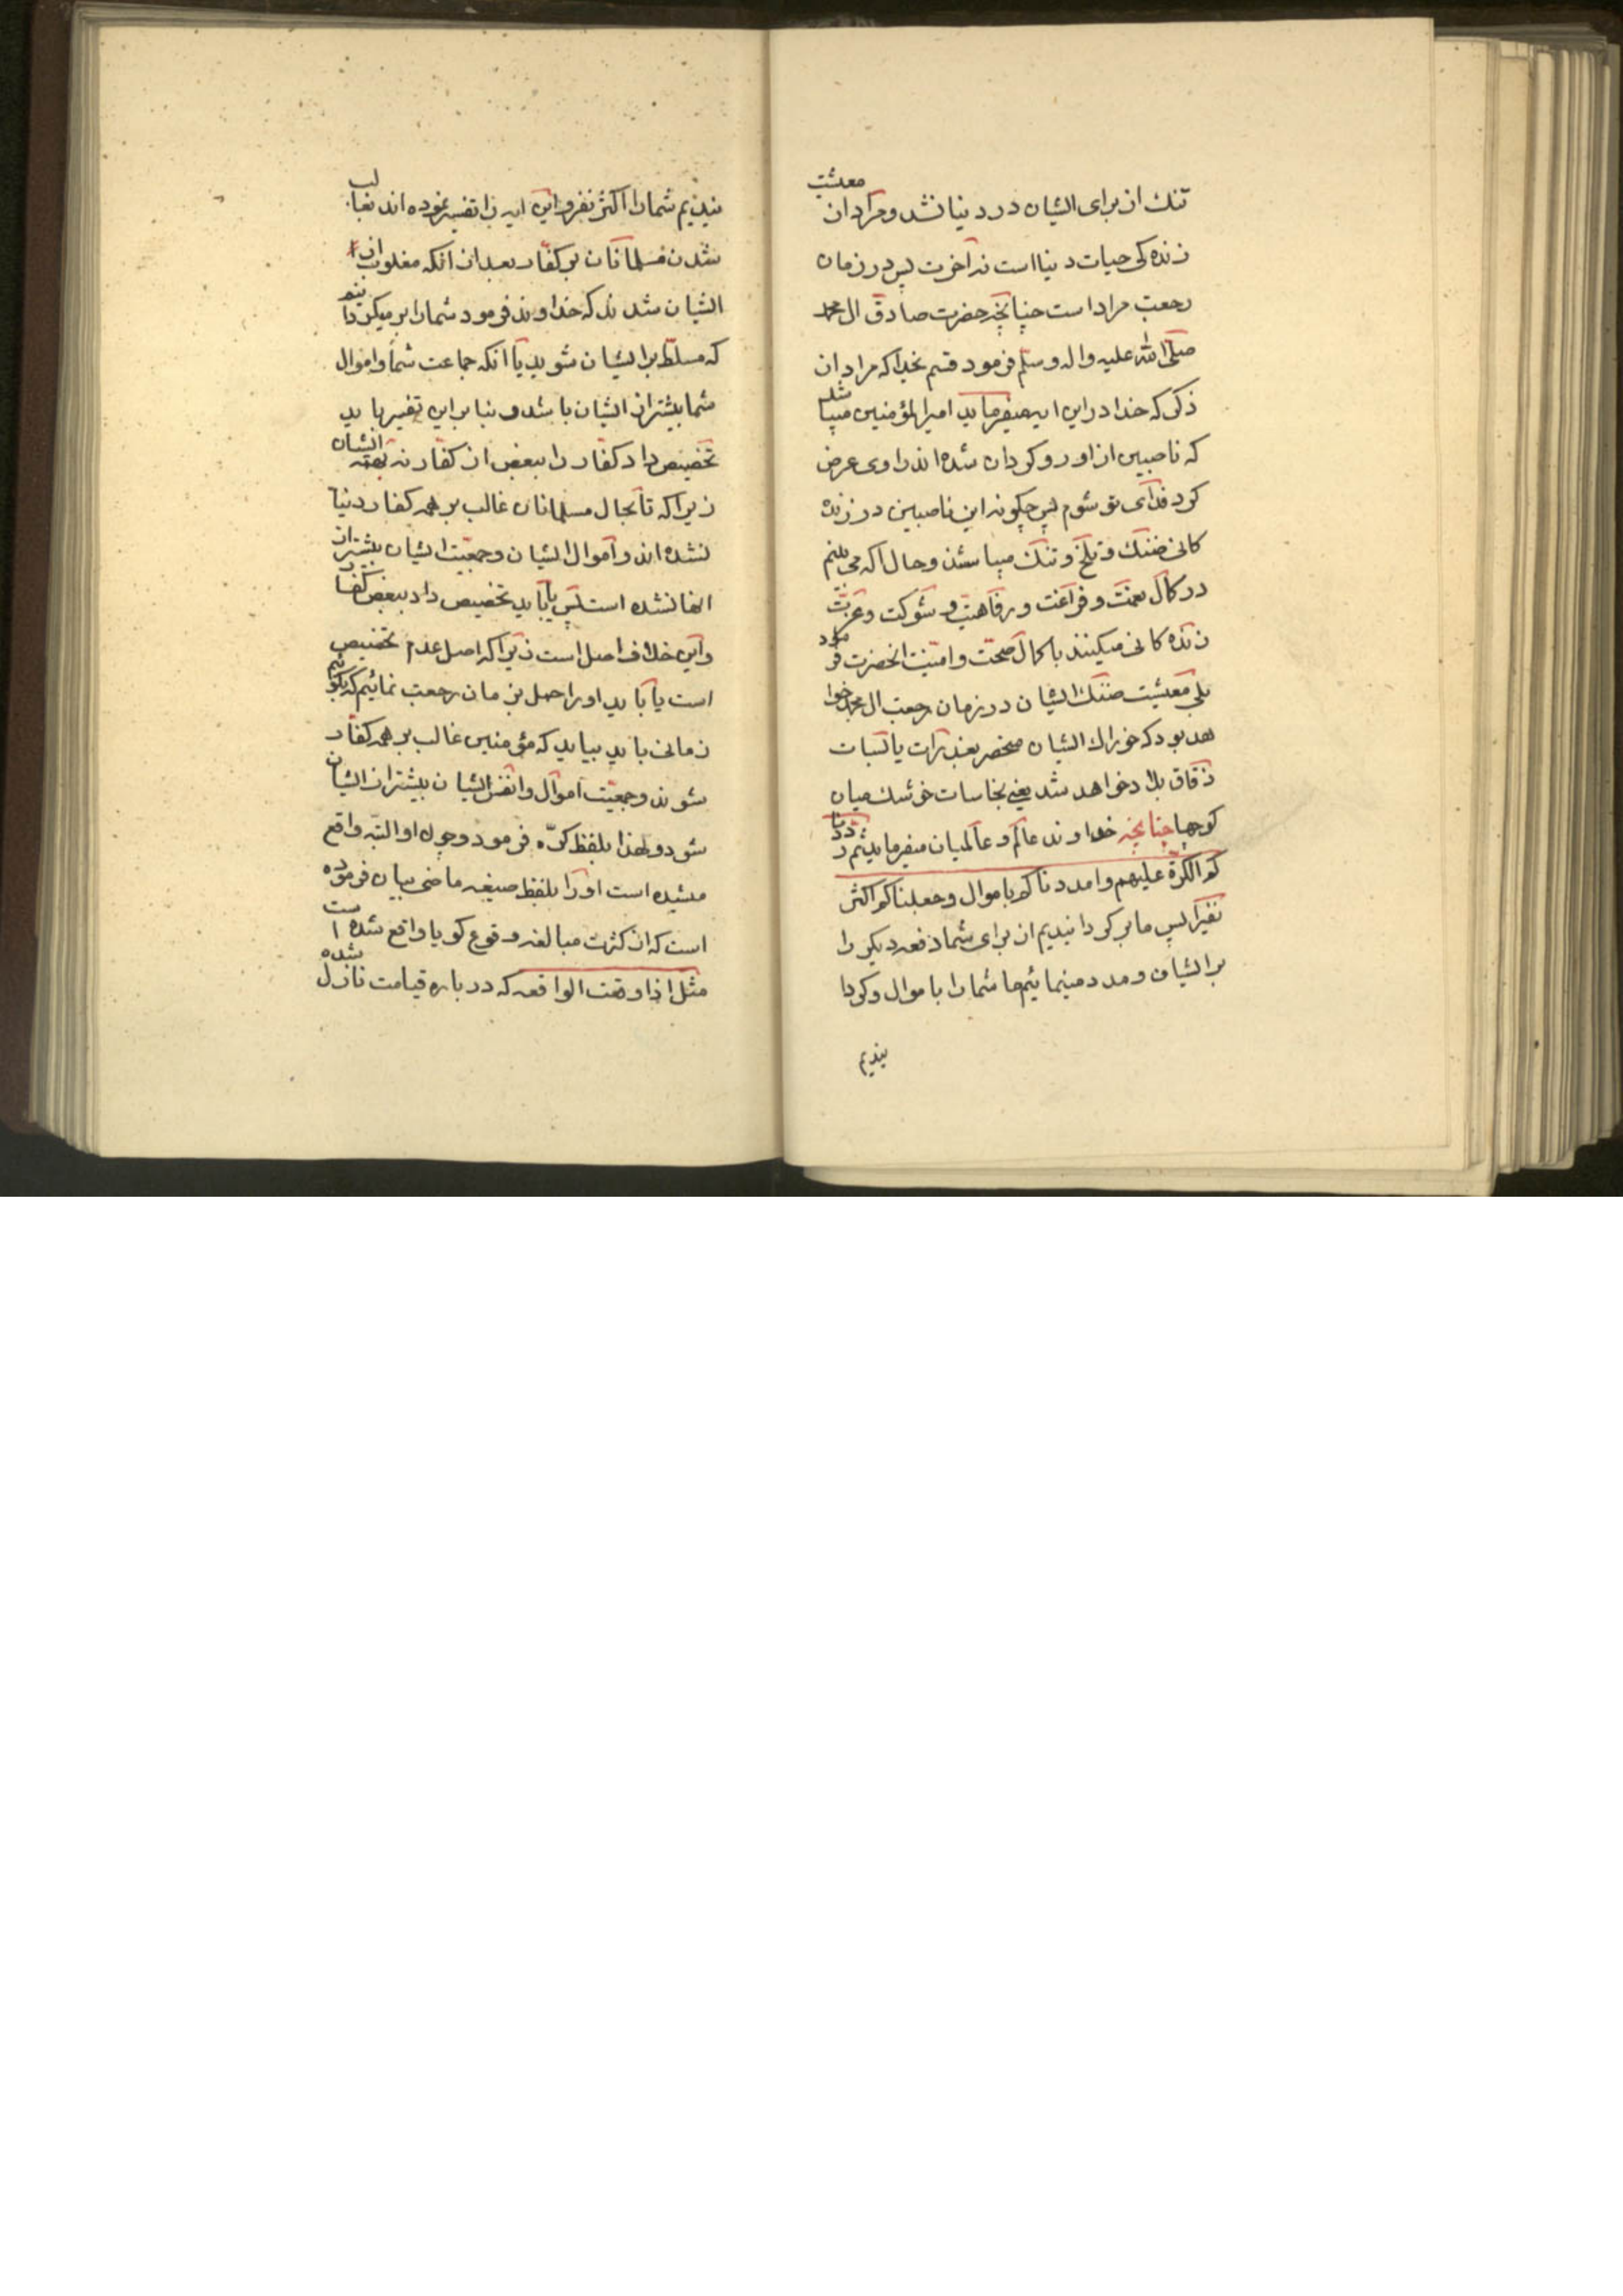 معشیت
تنك از برای ایشان در دنیا نشد و مراد از
زنده کی حیات دنیا است نه آخرت پس در زمان
رجعت مراد است چنانچه حضرت صادق ال محمد
صلی الله علیه واله وسلم فرمود قسم بخدا که مراد از
ذکری که خدا در این ایه میفرماید امیرالمؤمنین میباشد
که ناصبین از او رو کردان شده اند راوی عرض
کرد فدای تو شوم پس چکونه این ناصبین در زنده
کانی ضنك و تلخ و تنك میباشند و حال آنکه می بینم
در کمال نعمت و فراغت و رفاهیت و شوکت و عزت
زنده کانی میکینند با کمال صحت و امنیت انحضرت فرمود
بلی معشیت ضنك ایشان در زمان رجعت ال محمد خوا
هد بود که خوراك ایشان منحصر بعذرات یا
زقاق بلاد خواهد شد یعنی نجاسات خشك میان
کوچها چنانچه خداوند عالم و عالمیان میفرماید ثم رددنا
لکم الکرة علیهم وامددناکم باموال وجعلناکم اکثر
نفیرا پس ما بر کردانیدیم از برای شما دفعه دیکر را
بر ایشان و مدد مینمائیم ما شما را باموال و کردا
نیدیم
نیدیم شما را اکثر نفر و این ایه را تفسیر نموده اند بغالب
شدن مسلمانان بر کفار بعد از انکه مغلوب از
ایشان شدند که خداوند فرمود شما را بر میکردانیم
که مسلط بر ایشان شوید یا انکه جماعت شما و اموال
شما بیشتر از ایشان باشد و بنا بر این تفسیرها باید
تخصیص داد کفار را ببعض از کفار نه همه ایشان
زیرا که تا بحال مسلمانان غالب بر همه کفار دنیا
نشده اند و اموال ایشان و جمعیت ایشان بیشتر از
انها نشده است پس یا باید تخصیص داد ببعض کفار
و این خلاف اصل است زیرا که اصل عدم تخصیص
است یا باید او را حمل بزمان رجعت نمائیم که بکوئیم
زمانی باید بیاید که مؤمنین غالب بر همه کفار
شوند و جمعیت اموال و انفس ایشان بیشتر از ایشان
شود و لهذا بلفظ کره فرمود و چون او البته واقع
شده است او را بلفظ صیغه ماضی بیان فرموده
است که از کثرت مبالغه وقوع کویا واقع شده است
مثل اذا وقعت الواقعه که درباره قیامت نازل شده